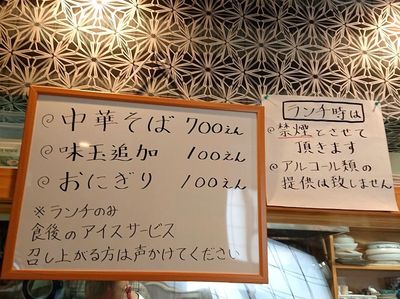 中華そば 700えん
味玉追加 100えん
おにぎり 100えん
※ランチのみ
食後のアイスサービス
召し上がる方は声かけてください
ランチ時は
禁煙とさせて
頂きます
アルコール類の
提供は致しません